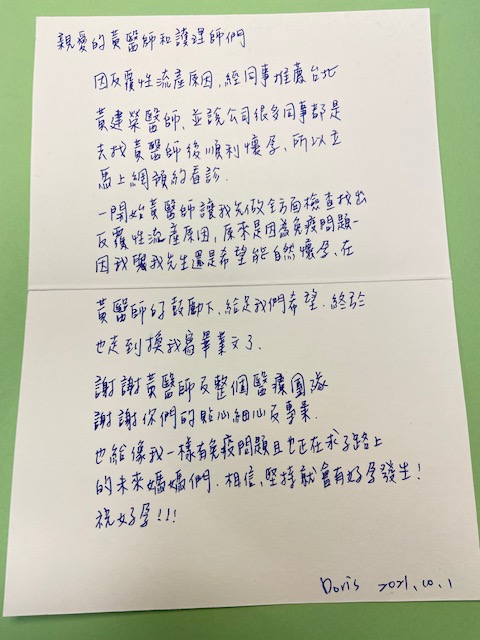 親愛的黃醫師和護理師們
因反覆性流產原因,經同事推薦台北
黃建榮醫師,並說公司很多同事都是
去找黃醫師後順利懷孕,所以立
馬上網預約看診.
一開始黃醫師讓我先做全方面檢查找出
反覆性流產原因,原來是因為免疫問題-
因我與我先生還是希望能自然懷孕,在
黃醫師的鼓勵下,給足我們希望.終於
也走到換我寫畢業文了.
謝謝黃醫師及整個醫療團隊
謝謝你們的貼心細心及專業.
也給像我一樣有免疫問題且也正在求子路上
的未來媽媽們.相信,堅持就會有好孕發生!
祝好孕!!!
Doris 2021.10.1